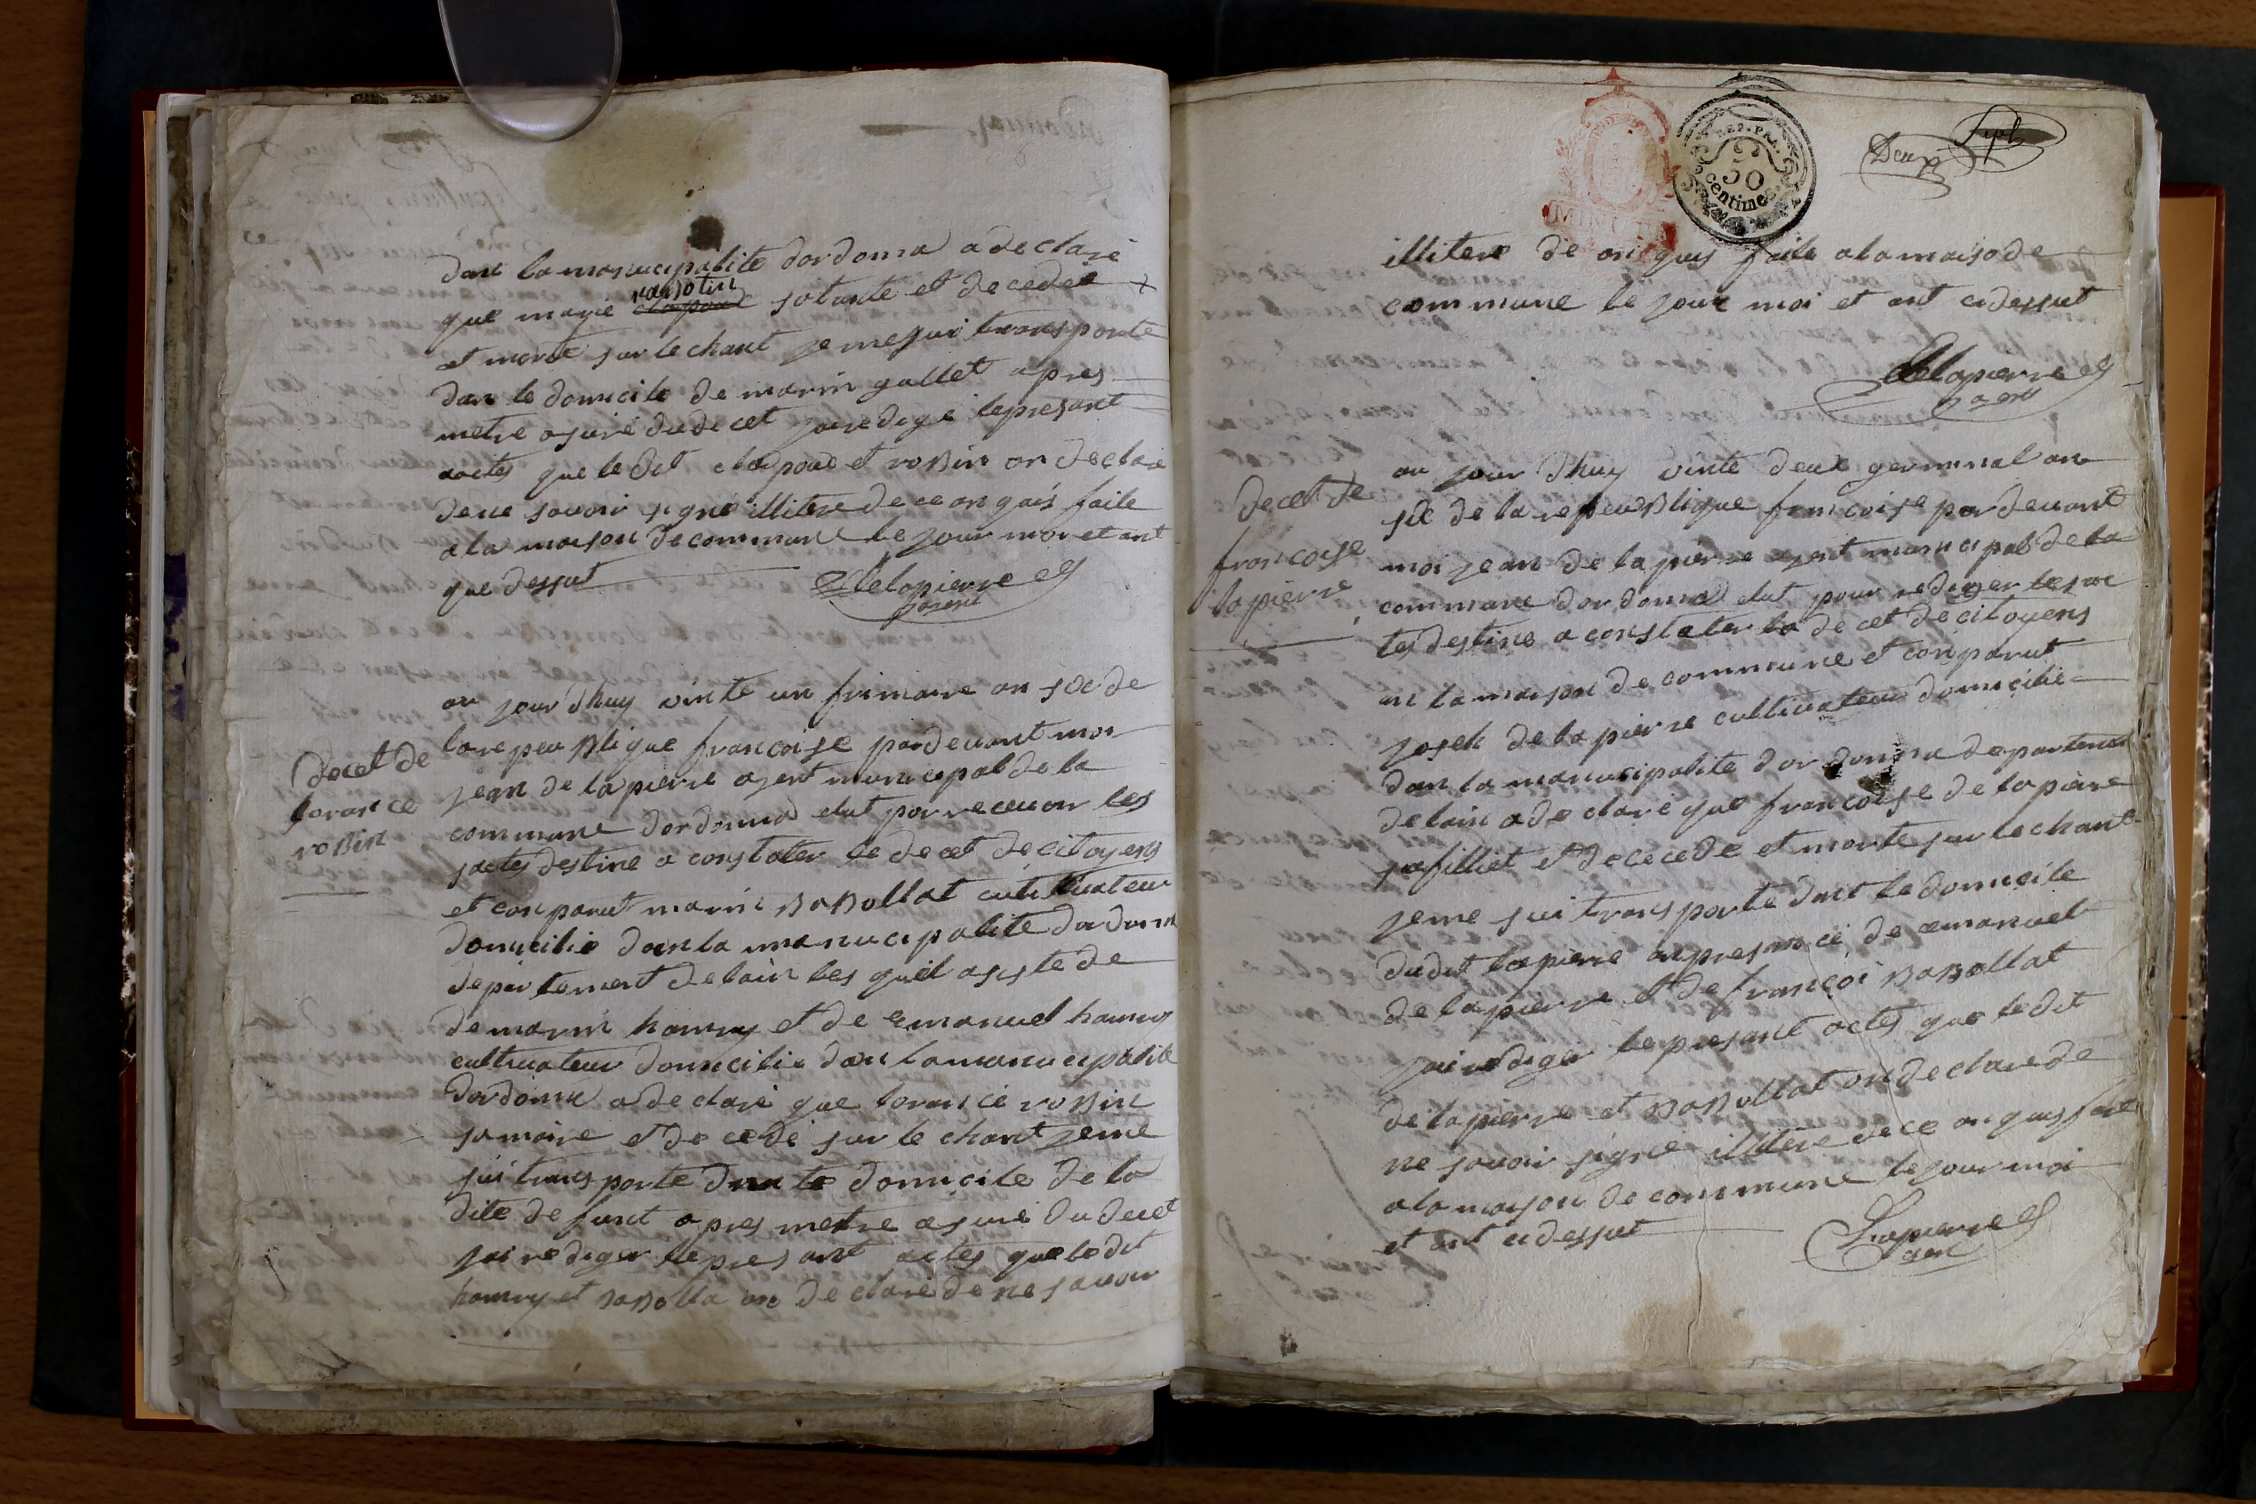 dans la manucipalite dordonna a declaré
que marie rabotin clapond sa tante et decedee +
et morte sur le chant je me sui transporte
dan le domicile de marin gallet apres
metre asuré du decet jai redigé le presant
actes que le dit clapond et robin on declaré
de ne savoir signé illitere de ce on quis faite
a la maison de commune le jour moi et ant
que dessut
delapierre
agent
au jour dhuy vinte un frimaire an sixe de
la republique francoise pardevant moi
decet de
lorance
robin
jean de lapierre agent municipal de la
commune dordonna elut por recevoir les
sactes destine a constater le decet de citoyens
et conparut marin babollat cultivateur
domicilie dan la manucipalite dordonna
departement de lain les quel asiste de
de marin hanry et de emanuel hanry
cultivateur domicilie dan la manucipalite
dordonna a declaré que lorance robin
sa maire et decedé sur le chant je me
sui transporte dan le domicile de la
dite defunt apres metre asuré du decet
jai rediger le presant actes que le dit
hanry et babolla on declaré de ne savoir
REP. FRA.
50
centimes
MINUTE
Deux
illitere de on quis faite a la maiso de
commune le jour moi et ant cidessut
delapierre
agent
decet de
francoise
lapierre
au jour dhuy vinte deux germinal an
six de la republique francoise par devant
moi jean de lapierre agent municipal de la
commune dordonna elut pour rediger les ac
tes destine a constater la decet de citoyens
an la maison de commune et conparut
josek de lapierre cultivateur domicilie
dan la manucipalite dordonna departement
de lain a declaré que francoise de lapierre
sa filliet et decede et morte sur le chant
je me sui transporte dant le domicile
dudit lapierre an presance de emanuel
de lapierre et de françoi babollat
jai rediger le presant actes que le dit
de lapierre et babollat on declare de
ne savoir signe illitere de ce on quis fait
a la maison de commune le jour moi
et ant cidessut
Lapierre
agent